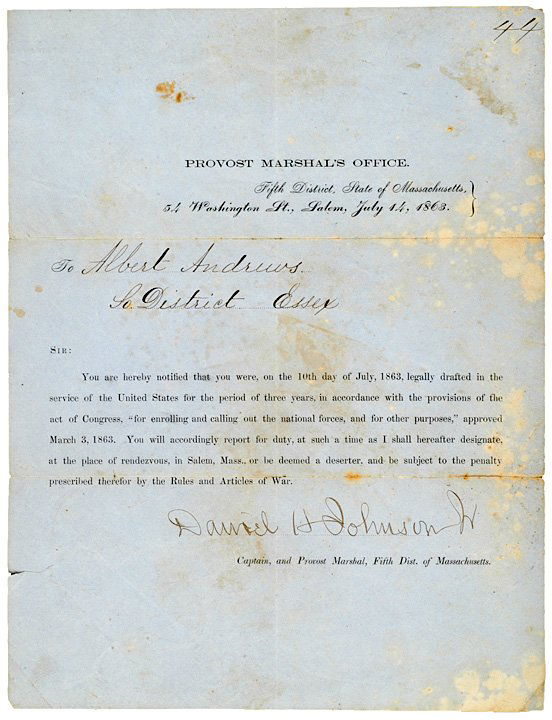 44
PROVOST MARSHAL'S OFFICE.
Fifth District, State of Massachusetts,
54 Washington St., Salem, July 14, 1863.
To Albert Andrews.
So. District Essex
SIR:
You are hereby notified that you were, on the 10th day of July, 1863, legally drafted in the
service of the United States for the period of three years, in accordance with the provisions of the
act of Congress, "for enrolling and calling out the national forces, and for other purposes," approved
March 3, 1863. You will accordingly report for duty, at such a time as I shall hereafter designate,
at the place of rendezvous, in Salem, Mass., or be deemed a deserter, and be subject to the penalty
prescribed therefor by the Rules and Articles of War.
Daniel H Johnson Jr
Captain, and Provost Marshal, Fifth Dist. of Massachusetts.